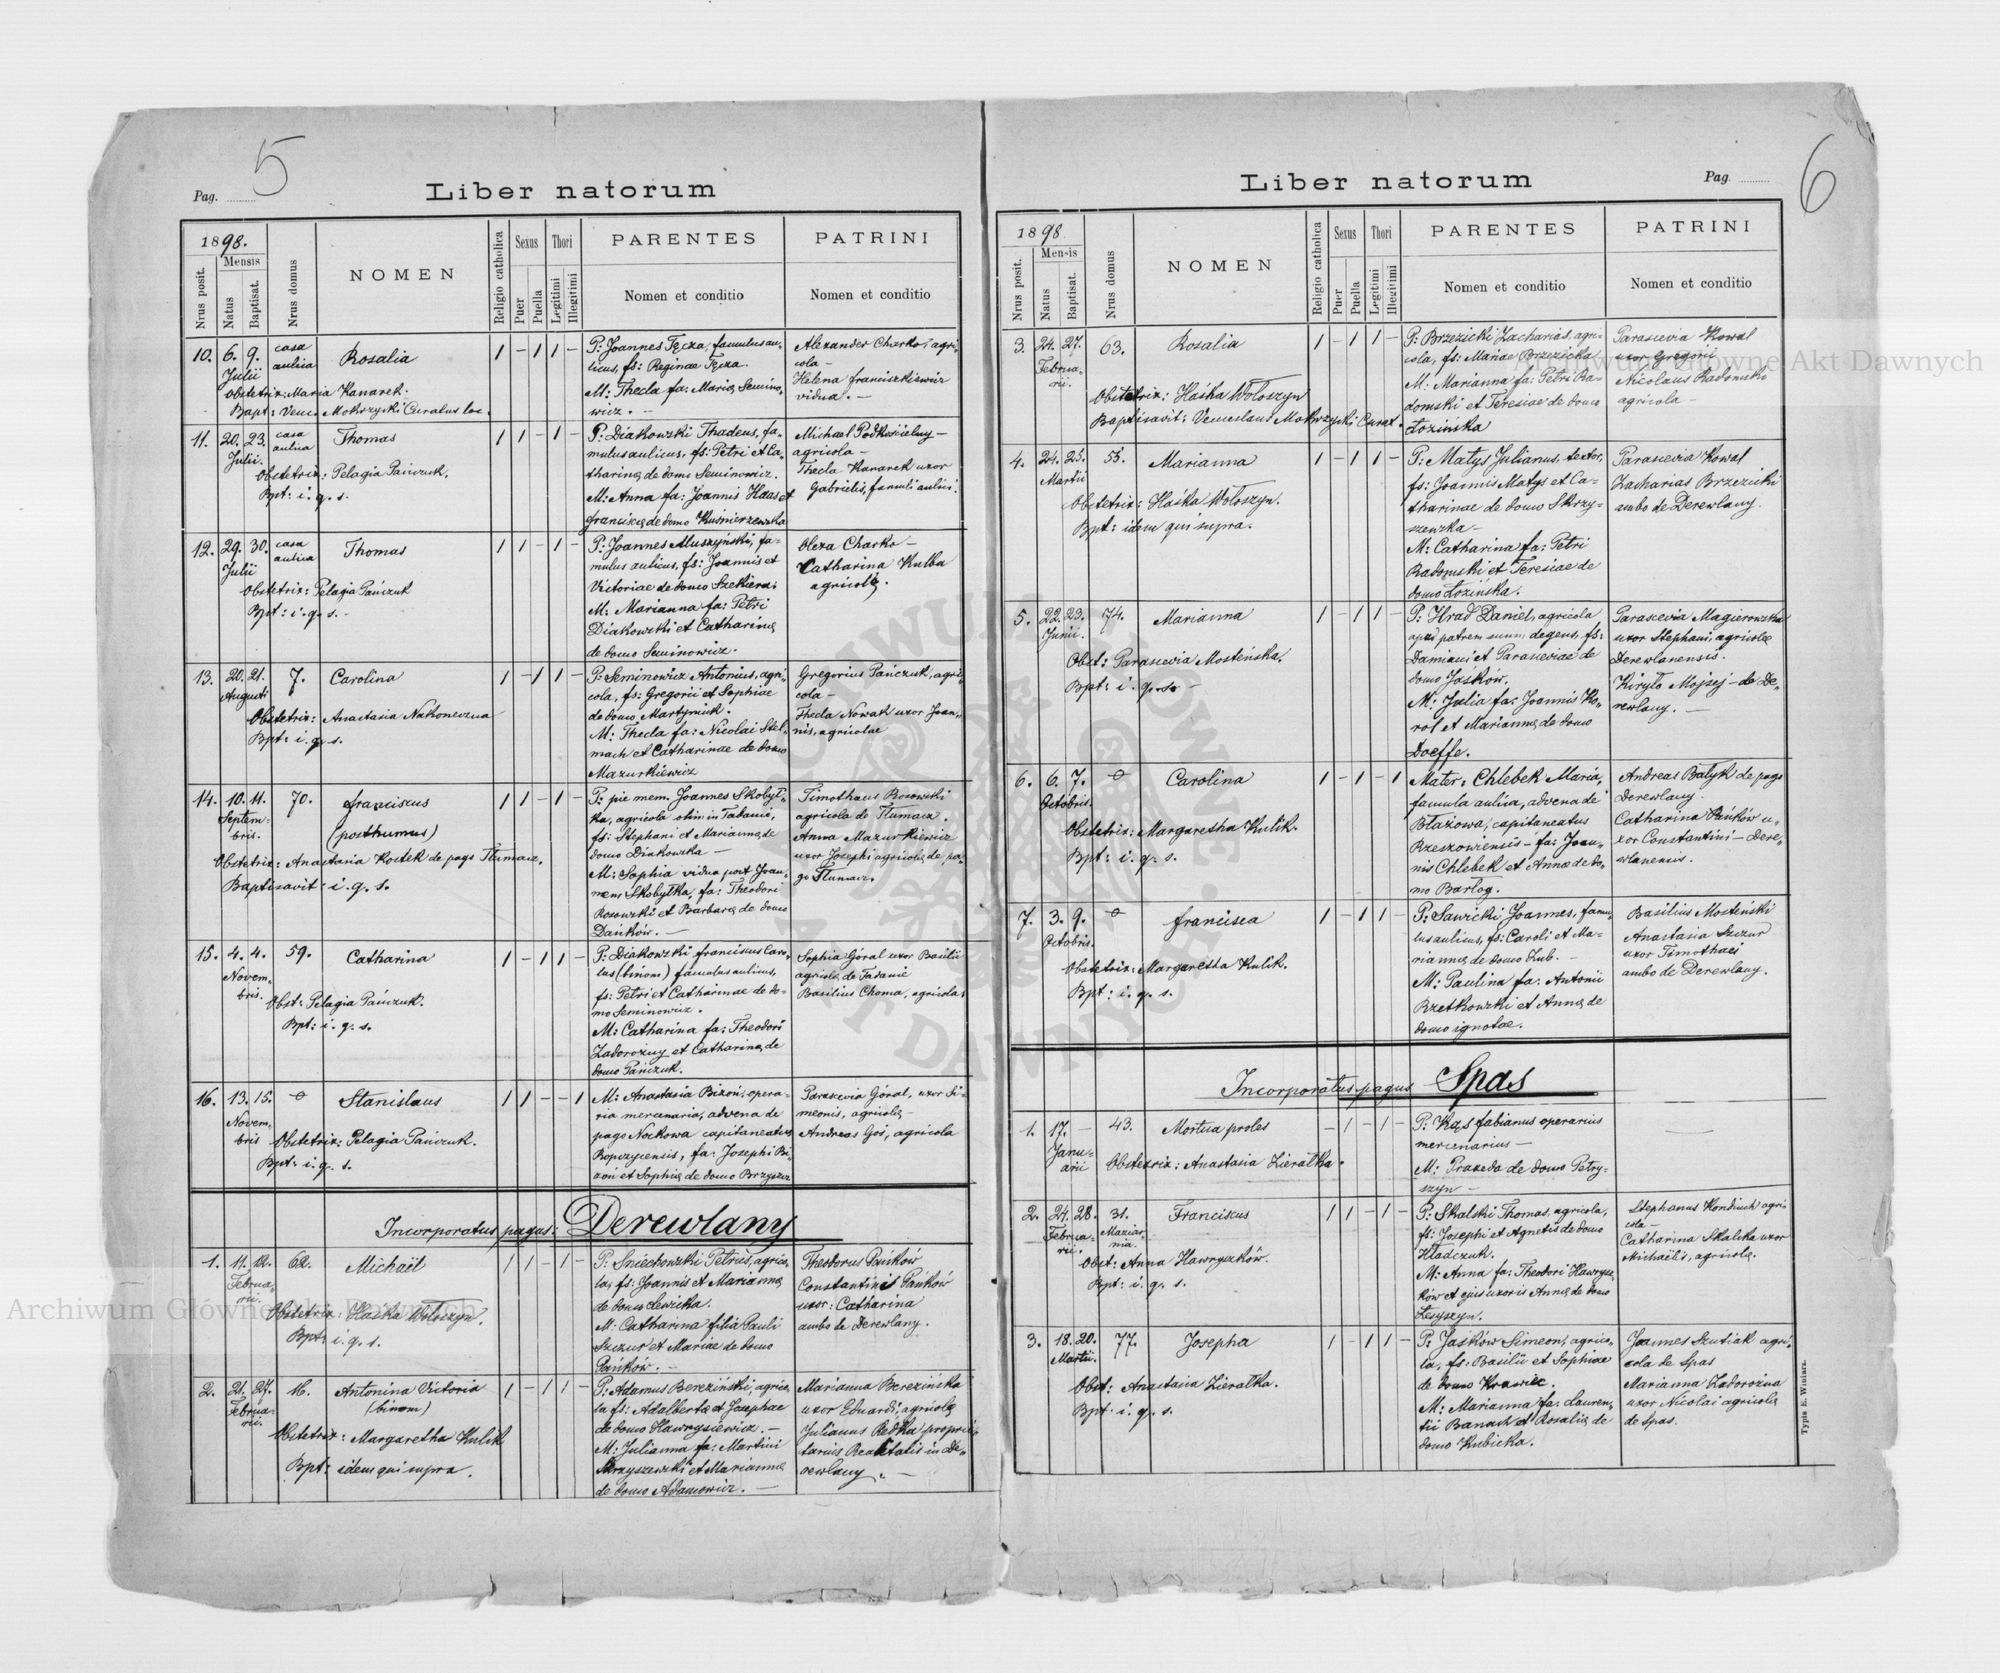 5
Pag.
Liber natorum
1898.
Mensis
Nrus posit.
Natus
Baptisat.
Nrus domus
NOMEN
Religio catholica
Sexus
Puer
Puella
Thori
Legitimi
Illegitimi
PARENTES
Nomen et conditio
PATRINI
Nomen et conditio
10. 6. 9. casa aulica Rosalia 1 – 1 1 –
Julii
Obstetrix: Maria Kanarek.
Bapt: Venc. Mokrzycki Curatus loc.
P: Joannes Tęcza, famulus au-
licus, fs: Reginae Tęcza.
M: Thecla fa: Mariae Semino-
wicz. –
Alexander Charko, agri-
cola –
Helena Franciszkiewicz
vidua. –
11. 20. 23. casa aulica Thomas 1 1 – 1 –
Julii.
Obstetrix: Pelagia Pańczuk.
Bpt: i. q. s.
P: Diakowski Thadeus, fa-
mulus aulicus, fs: Petri et Ca-
tharinae de domo Seminowicz.
M: Anna fa: Joannis Haas et
Franciscae de domo Kuśmierzewska
Michael Podkościelny –
agricola –
Thecla Kanarek uxor
Gabrielis, famuli aulici.
12. 29. 30. casa aulica Thomas 1 1 – 1 –
Julii
Obstetrix: Pelagia Pańczuk
Bpt: i. q. s. –
P: Joannes Muszyński, fa-
mulus aulicus, fs: Joannis et
Victoriae de domo Szekiera.
M: Marianna fa: Petri
Diakowski et Catharinae
de domo Seminowicz.
Olexa Charko –
Catharina Kulba
agricolae.
13. 20. 21. 7. Carolina 1 – 1 1 –
Augusti
Obstetrix: Anastasia Nakoneczna
Bpt: i. q. s.
P: Seminowicz Antonius, agri-
cola, fs: Gregorii et Sophiae
de domo Martyniuk.
M: Thecla fa: Nicolai Stel-
mach et Catharinae de domo
Mazurkiewicz
Gregorius Pańczuk, agri-
cola –
Thecla Nowak uxor Joan-
nis, agricolae
14. 10. 11. 70. Franciscus 1 1 – 1 –
Septem-
bris.
(posthumus)
Obstetrix: Anastasia Kostek de pago Tłumacz.
Baptisavit: i. q. s.
P: pie mem. Joannes Skobył-
ka, agricola olim in
fs: Stephani et Mariannae de
domo Diakowska –
M: Sophia vidua post Joan-
nem Skobyłka, fa: Theodori
Rosowski et Barbarae de domo
Dańków. –
Timotheus Borowski
agricola de Tłumacz.
Anna Mazurkiewicz
uxor Josephi agricolae, de pa-
go Tłumacz.
15. 4. 4. 59. Catharina 1 – 1 1 –
Novem-
bris.
Obst: Pelagia Pańczuk.
Bpt: i. q. s.
P: Diakowski Franciscus Caro-
lus (binom) famulus aulicus,
fs: Petri et Catharinae de do-
mo Seminowicz.
M: Catharina fa: Theodori
Zadorożny et Catharinae de
domo Pańczuk.
Sophia Góral uxor Basilii
agricolae de
Basilius Choma, agricola.
16. 13. 15. –o– Stanislaus 1 1 – – 1
Novem-
bris
Obstetrix: Pelagia Pańczuk.
Bpt: i. q. s.
M: Anastasia Bizoń, opera-
ria mercenaria, advena de
pago Nockowa capitaneatus
Ropczycensis, fa: Josephi Bi-
zoń et Sophiae de domo
Parascevia Góral, uxor Si-
meonis, agricolae –
Andreas Goś, agricola
Incorporatus pagus: Derewlany
1. 11. 12. 62. Michaël 1 1 – 1 –
Februa-
rii.
Obstetrix: Haśka Wołoszyn.
Bpt: i. q. s.
P: Sniechowski Petrus, agrico-
la, fs: Joannis et Mariannae
de domo Lewicka.
M: Catharina filia Pauli
Szczur et Mariae de domo
Pańków. –
Theodorus Pańków
Constantini Pańków
uxor: Catharina
ambo de Derewlany.
2. 21. 27. 16. Antonina Victoria 1 – 1 1 –
Februa-
rii.
(binom)
Obstetrix: Margaretha Kulik
Bpt: idem qui supra.
P: Adamus Bereziński, agrico-
la fs: Adalberti et Josephae
de domo Hawrysiewicz. –
M: Julianna fa: Martini
Skrzyszewski et Mariannae
de domo Adamowicz. –
Marianna Berezińska
uxor Eduardi, agricolae
Julianus Redka proprie-
tarius Realitatis in De-
rewlany. –
6
Liber natorum
Pag.
1898
Mensis
Nrus posit.
Natus
Baptisat.
Nrus domus
NOMEN
Religio catholica
Sexus
Puer
Puella
Thori
Legitimi
Illegitimi
PARENTES
Nomen et conditio
PATRINI
Nomen et conditio
3. 24. 27. 63. Rosalia 1 – 1 1 –
Februa-
rii.
Obstetrix: Haśka Wołoszyn
Baptisavit: Venceslaus Mokrzycki Curat.
P: Brzezicki Zacharias, agri-
cola, fs: Mariae Brzezicka
M: Marianna fa: Petri Ra-
domski et Teresiae de domo
Łozińska
Parascevia Kowal
uxor Gregorii
Nicolaus Radomski
agricola –
4. 24. 25. 55. Marianna 1 – 1 1 –
Martii
Obstetrix: Haśka Wołoszyn.
Bpt: idem qui supra.
P: Matys Julianus, textor,
fs: Joannis Matys et Ca-
tharinae de domo Skrzy-
szewska –
M: Catharina fa: Petri
Radomski et Teresiae de
domo Łozińska.
Parascevia Kowal
Zacharias Brzezicki
ambo de Derewlany.
5. 22. 23. 74. Marianna 1 – 1 1 –
Junii.
Obst: Parascevia Mosteńska.
Bpt: i. q. s. –
P: Hrad Daniel, agricola
apud patrem suum degens, fs:
Damiani et Parasceviae de
domo Jaśków.
M: Julia fa: Joannis Ko-
rol et Mariannae de domo
Doeffe.
Parascevia Magierowska
uxor Stephani, agricolae
Derewlanensis.
Kiryło Mojsej – de De-
rewlany. –
6. 6. 7. –o– Carolina 1 – 1 – 1
Octobris.
Obstetrix: Margaretha Kulik.
Bpt: i. q. s.
Mater: Chlebek Maria,
famula aulica, advena de
Błażowa, capitaneatus
Rzeszowiensis – fa: Joan-
nis Chlebek et Annae de do-
mo Barłog.
Andreas Bałyk de pago
Derewlany.
Catharina Pańków u-
xor Constantini – Dere-
wlanensis.
7. 3. 9. –o– Francisca 1 – 1 1 –
Octobris.
Obstetrix: Margaretha Kulik.
Bpt: i. q. s.
P: Sawicki Joannes, famu-
lus aulicus, fs: Caroli et Ma-
riannae de domo Zub. –
M: Paulina fa: Antonii
Rzetkowski et Annae de
domo ignotae.
Basilius Mosteński
Anastasia Szczur
uxor Timothaei
ambo de Derewlany.
Incorporatus pagus Spas
1. 17. – 43. Mortua proles – 1 – 1 –
Janu-
arii
Obstetrix: Anastasia Zierałka.
P: Kąs Fabianus operarius
mercenarius –
M: Praxeda de domo Petry-
szyn –
2. 24. 28. 31. Franciscus 1 1 – 1 –
Februa-
rii.
Maziar-
nia.
Obst: Anna Hawryszków.
Bpt: i. q. s.
P: Skalski Thomas, agricola,
fs: Josephi et Agnetis de domo
Hładczuk.
M: Anna fa: Theodori Hawrysz-
ków et ejus uxoris Annae de domo
Łesyszyn.
Stephanus Kondiuch agri-
cola –
Catharina Skalska uxor
Michaëlis, agricolae
3. 18. 20. 77. Josepha 1 – 1 1 –
Martii.
Obst: Anastasia Zierałka.
Bpt: i. q. s.
P: Jaśków Simeon, agrico-
la, fs: Basilii et Sophiae
de domo Krawiec.
M: Marianna fa: Lauren-
tii Banach et Rosaliae de
domo Kubicka.
Joannes Szutiak agri-
cola de Spas
Marianna Zadorożna
uxor Nicolai agricolae
de Spas.
Typis E. Winiarz.
Archiwum Główne Akt Dawnych
Archiwum Główne Akt Dawnych
ARCHIWUM GŁÓWNE AKT DAWNYCH